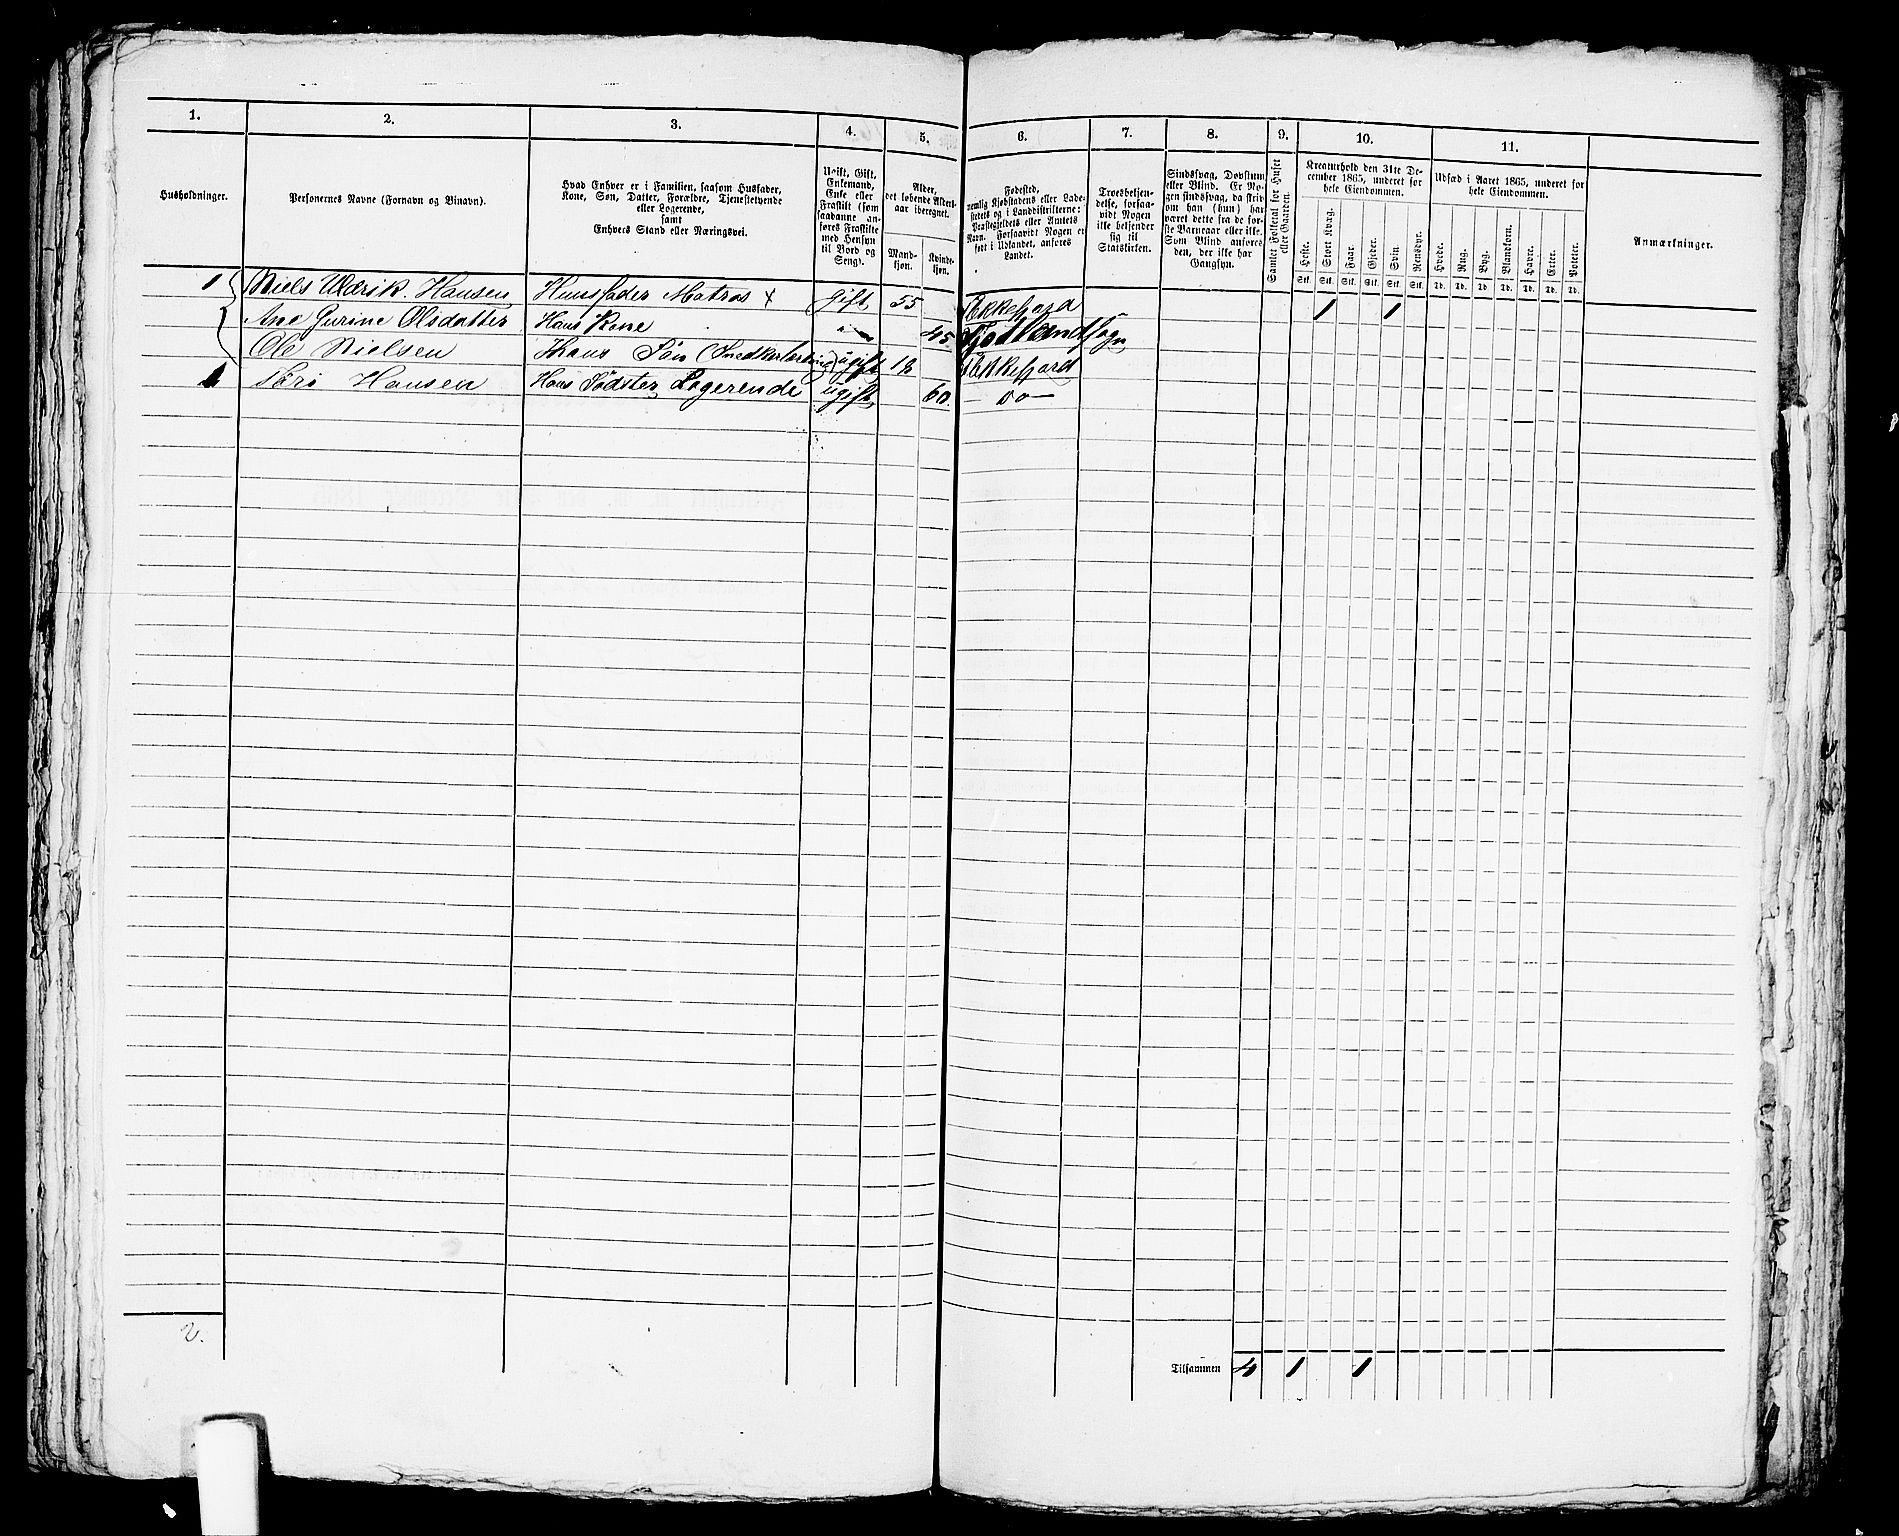 1. 2. 3. 4. 5. 6. 7. 8. 9. 10. 11.
Husholdninger.
Personernes Navne (Fornavn og Binavn).
Hvad Enhver er i Familien, saasom Husfader,
Kone, Søn, Datter, Forældre, Tjenestetyende
eller Logerende,
samt
Enhvers Stand eller Næringsvei.
Ugift, Gift,
Enkemand,
Enke eller
Fraskilt (som
saadanne an-
føres Fraskilte
med Hensyn
til Bord og
Seng).
Alder,
det løbende Alders-
aar iberegnet.
Mand-
kjøn.
Kvinde-
kjøn.
Fødested,
nemlig Kjøbstadens eller Lade-
stedets og i Landdistrikterne:
Præstegjeldets eller Amtets
Navn. Forsaavidt Nogen er
født i Udlandet, anføres
Landet.
Troesbekjen-
delse, forsaa-
vidt Nogen
ikke bekjender
sig til
Statskirken.
Sindssvag, Døvstum
eller Blind. Er No-
gen sindssvag, da skriv
om han (hun) har
været dette fra de før-
ste Barneaar eller ikke.
Som Blind anføres
den, der ikke har
Gangsyn.
Samlet Folketal for Huset
eller Gaarden.
Kreaturhold den 31te De-
cember 1865, underet for
hele Eiendommen.
Heste. Stort Kvæg. Faar. Gjeder. Svin. Rensdyr.
Stk. Stk. Stk. Stk. Stk. Stk.
Udsæd i Aaret 1865, underet for
hele Eiendommen.
Hvede. Rug. Byg. Blandkorn. Havre. Erter. Poteter.
Td. Td. Td. Td. Td. Td. Td.
Anmærkninger.
1 Niels Ulerik. Hansen Huusfader Matros x gift 55 Flekkefjord 1 1
Ane Gurine Olsdatter Hans Kone 45
Ole Nielsen Hans Søn (Snedkerlærling) ugift 18 Flekkefjord
1 Hansen Hans Södster Logerende ugift 60. — Do —
2.
Tilsammen 4 1 1